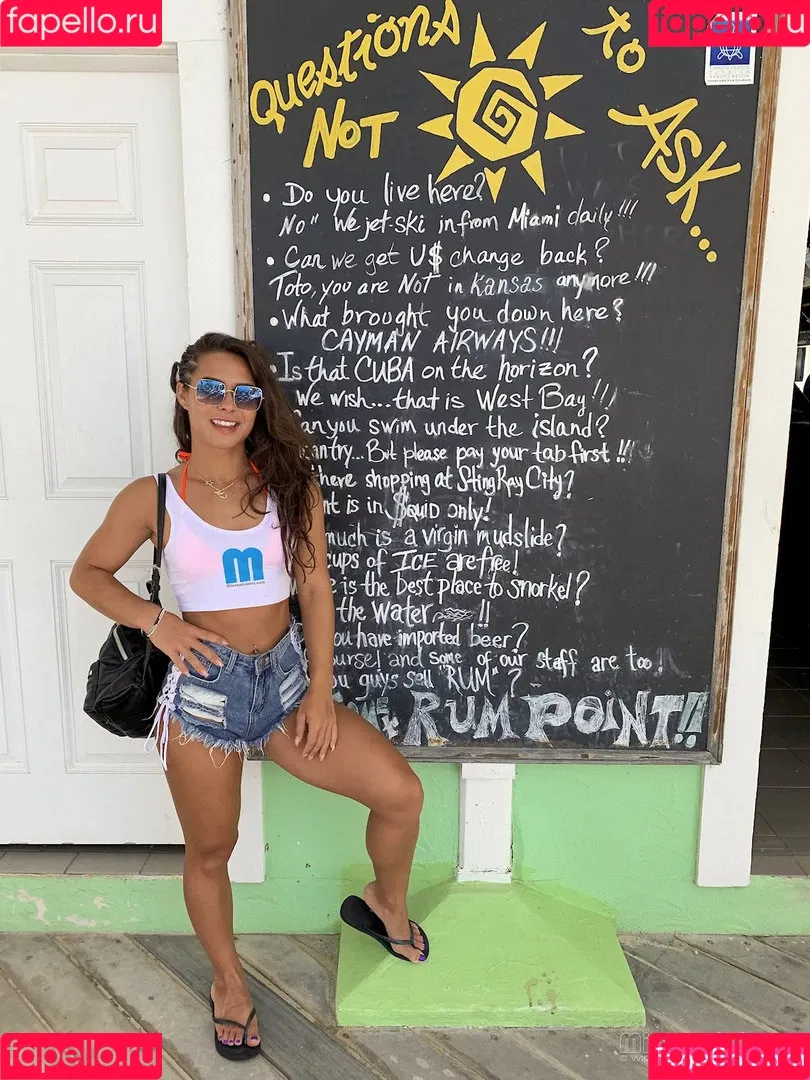 fapello.ru
fapello.ru
Questions to
Not Ask...
• Do you live here?
No" We jet-ski in from Miami daily!!!
• Can we get U$ change back?
Toto, you are Not in Kansas anymore!!!
• What brought you down here?
CAYMAN AIRWAYS!!!
• Is that CUBA on the horizon?
We wish...that is West Bay!!)
an you swim under the island?
antry...But please pay your tab first!!!
here shopping at StingRay City?
t is in $QUID only!
much is a virgin mudslide?
cups of ICE are free!
e is the best place to snorkel?
the Water !!
ou have imported beer?
ourse! and some of our staff are too!
u guys sell "RUM"?
RUM POiNT!!
m
fapello.ru
fapello.ru